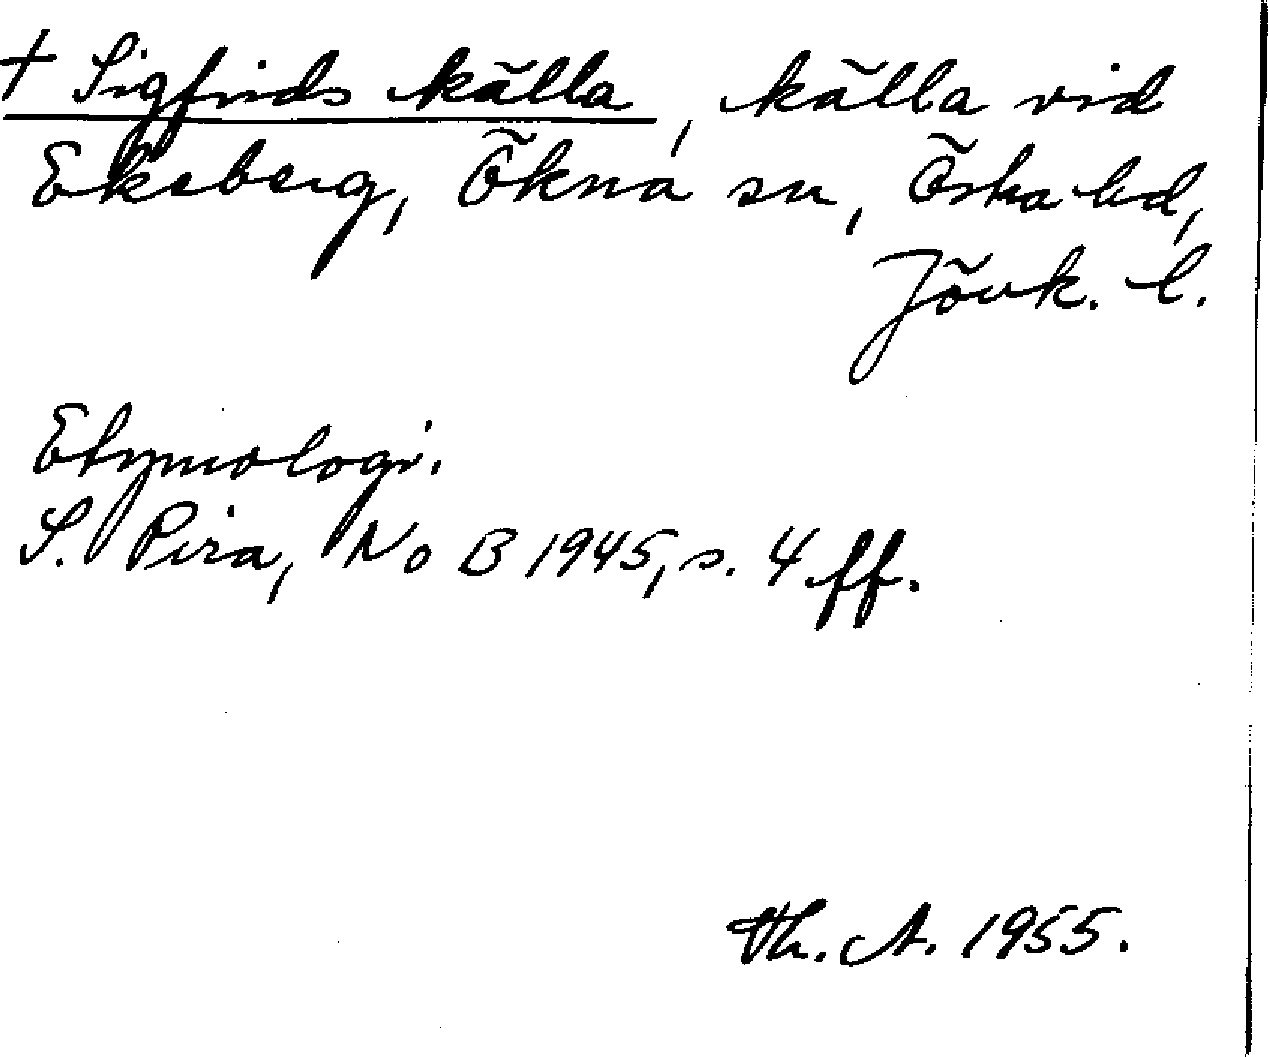 † Sigfrids källa, källa vid
Ekeberg, Ökna sn, Östra hd,
Jönk. l.
Etymologi.
S. Pira, NoB 1945, s. 4 ff.
Th. A. 1955.